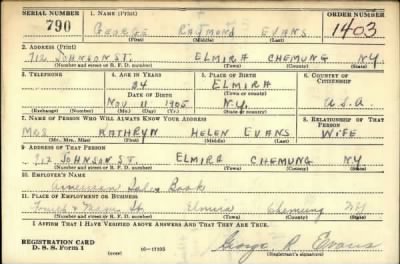 SERIAL NUMBER 1. NAME (Print) ORDER NUMBER
790 GEORGE RAYMOND EVANS 1403
(First) (Middle) (Last)
2. ADDRESS (Print)
712 JOHNSON ST. ELMIRA CHEMUNG N.Y.
(Number and street or R. F. D. number) (Town) (County) (State)
3. TELEPHONE 4. AGE IN YEARS 5. PLACE OF BIRTH 6. COUNTRY OF CITIZENSHIP
34 ELMIRA
DATE OF BIRTH (Town or county)
NOV 11 1905 N.Y. U.S.A.
(Exchange) (Number) (Mo.) (Day) (Yr.) (State or country)
7. NAME OF PERSON WHO WILL ALWAYS KNOW YOUR ADDRESS 8. RELATIONSHIP OF THAT PERSON
MRS KATHRYN HELEN EVANS WIFE
(Mr., Mrs., Miss) (First) (Middle) (Last)
9. ADDRESS OF THAT PERSON
712 JOHNSON ST. ELMIRA CHEMUNG NY
(Number and street or R. F. D. number) (Town) (County) (State)
10. EMPLOYER'S NAME
American Sales Book
11. PLACE OF EMPLOYMENT OR BUSINESS
St. Elmira Chemung NY
(Number and street or R. F. D. number) (Town) (County) (State)
I AFFIRM THAT I HAVE VERIFIED ABOVE ANSWERS AND THAT THEY ARE TRUE.
REGISTRATION CARD George R Evans
D. S. S. Form 1 (over) 16-17105 (Registrant's signature)